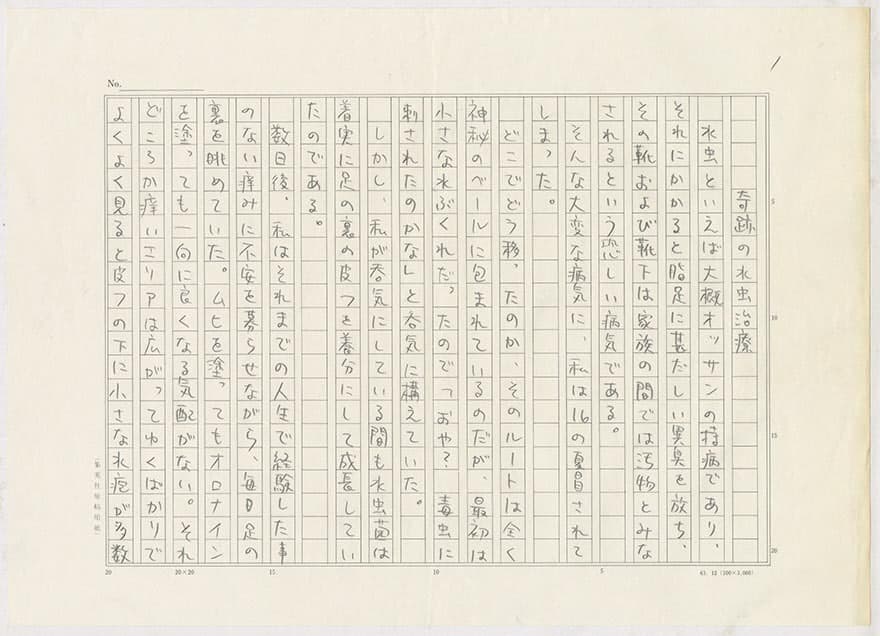 1
No.
奇跡の水虫治療
水虫といえば大概オッサンの持病であり、
それにかかると脂足に甚だしい異臭を放ち、
その靴および靴下は家族の間では汚物とみな
されるという恐しい病気である。
そんな大変な病気に、私は16の夏冒されて
しまった。
どこでどう移ったのか、そのルートは全く
神秘のベールに包まれているのだが、最初は
小さな水ぶくれだったので「おや? 毒虫に
刺されたのかな」と呑気に構えていた。
しかし、私が呑気にしている間も水虫菌は
着実に足の裏の皮フを養分にして成長してい
たのである。
数日後、私はそれまでの人生で経験した事
のない痒みに不安を募らせながら、毎日足の
裏を眺めていた。ムヒを塗ってもオロナイン
を塗っても一向に良くなる気配がない。それ
どころか痒いエリアは広がってゆくばかりで
よくよく見ると皮フの下に小さな水疱が多数
5
10
15
20
20
20×20
15
10
5
63. 12 (100×3,000)
(集英社原稿用紙)